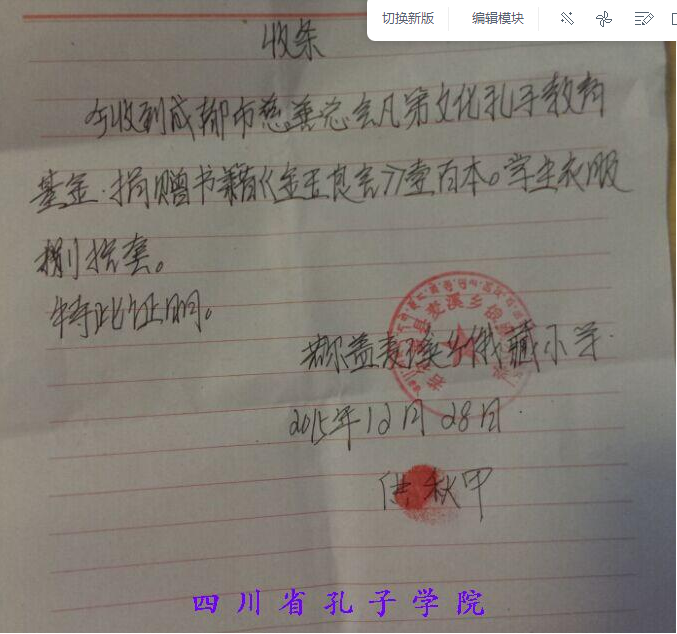 切换新版 编辑模块
收条
今收到成都市慈善总会凡第文化孔子教育
基金·捐赠书籍《金玉良言》壹百本。学生衣服
捌拾套。
特此证明。
若尔盖麦溪乡俄藏小学
2015年12月28日
供秋甲
四川省孔子学院